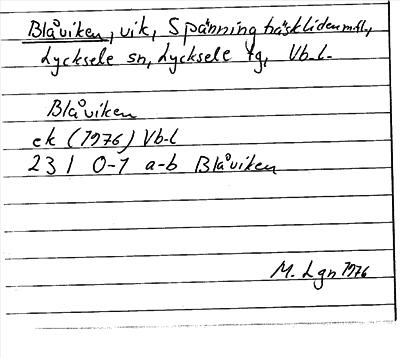 Blåviken, vik, Spänningträskliden mfl,
Lycksele sn, Lycksele tg, Vb-l.
Blåviken
ek (1976) Vb-l
23 I 0-1 a-b Blåviken
M. Lgn 1976